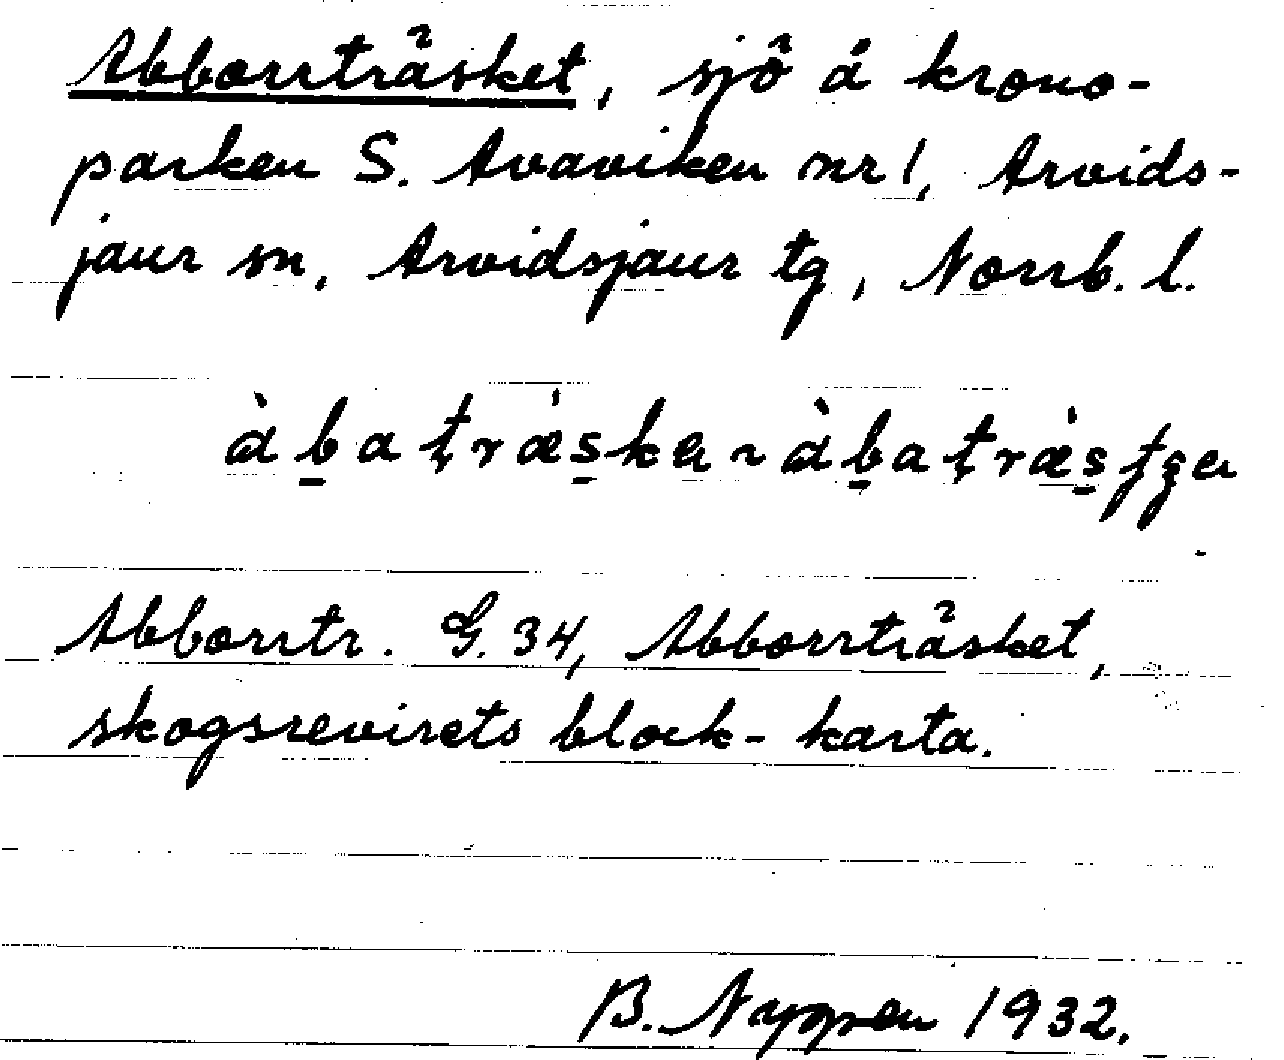 Abborrträsket, sjö å krono-
parken S. Avaviken nr 1, Arvids-
jaur sn, Arvidsjaur tg, Norrb. l.
àb̲atrǽs̲ka ~ àb̲atrǽs̲tʂa
Abborrtr. G. 34, Abborrträsket,
skogsrevirets block-karta.
B. Nyppen 1932.